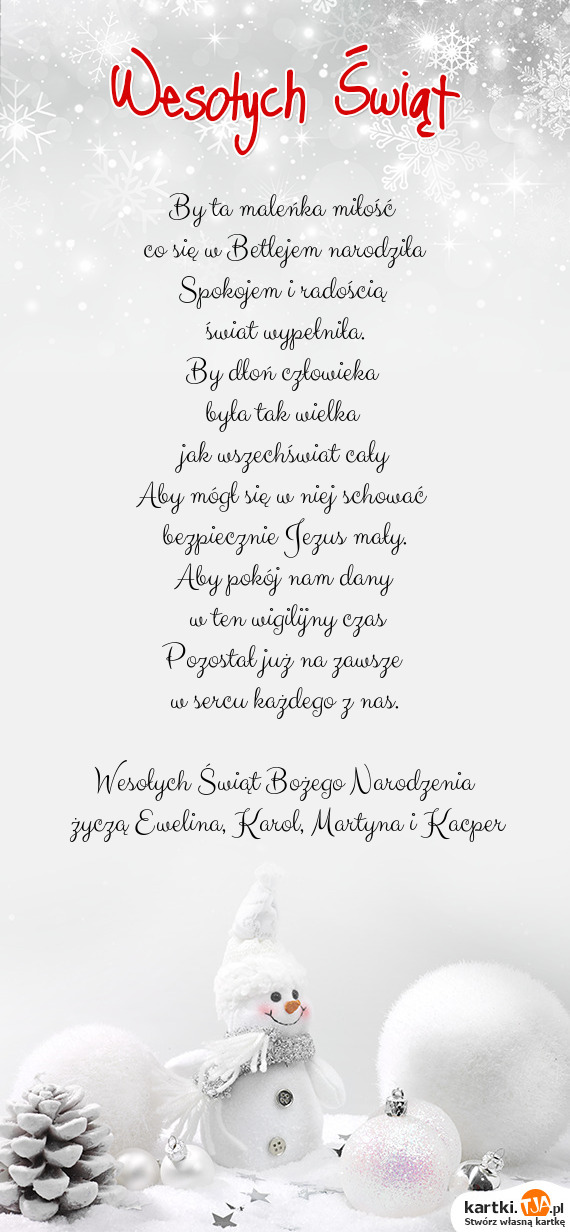 Wesołych Świąt
By ta maleńka miłość
co się w Betlejem narodziła
Spokojem i radością
świat wypełniła.
By dłoń człowieka
była tak wielka
jak wszechświat cały
Aby mógł się w niej schować
bezpiecznie Jezus mały.
Aby pokój nam dany
w ten wigilijny czas
Pozostał już na zawsze
w sercu każdego z nas.
Wesołych Świąt Bożego Narodzenia
życzą Ewelina, Karol, Martyna i Kacper
kartki.TJA.pl
Stwórz własną kartkę